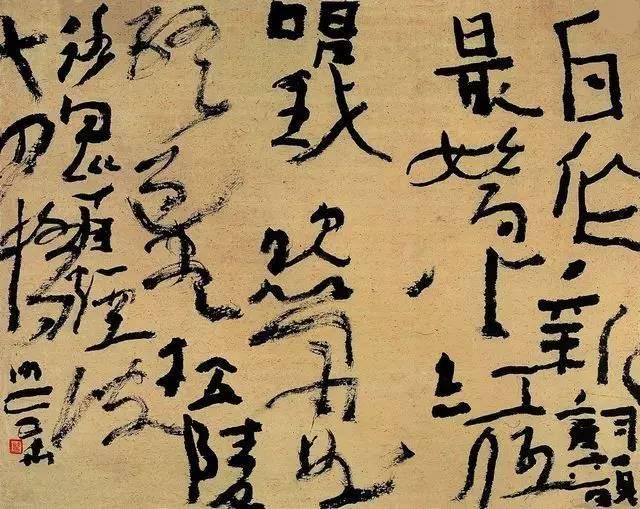 自作新詞韻
最嬌小紅低
唱我吹簫曲
終過盡松陵
路回首煙波
十四橋